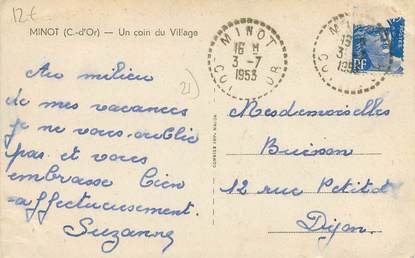 12€
MINOT (C.-d'Or) — Un coin du Village
MINOT
16 H
3 -7
1953
COTE D'OR
MINOT
3
1953
RF
21)
Au milieu
de mes vacances
je ne vous oublie
pas et vous
embrasse bien
affectueusement.
Suzanne
Mesdemoiselles
Buisson
12 rue Petitot
Dijon